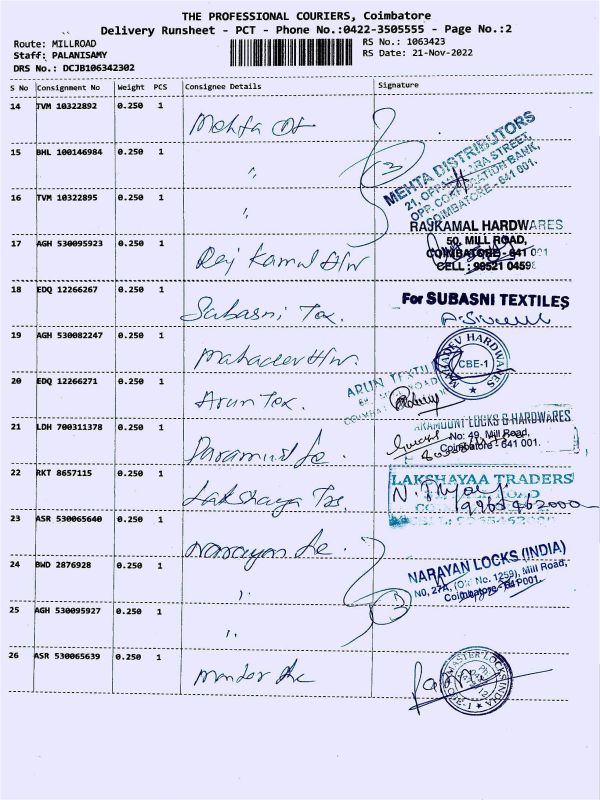 THE PROFESSIONAL COURIERS, Coimbatore
Delivery Runsheet - PCT - Phone No.:0422-3505555 - Page No.:2
Route: MILLROAD
RS No.: 1063423
Staff: PALANISAMY
RS Date: 21-Nov-2022
DRS No.: DCJB106342302
S No Consignment No Weight PCS Consignee Details Signature
14 TVM 10322892 0.250 1 Mehta
15 BHL 100146984 0.250 1 "
3
MEHTA DISTRIBUTORS
STREET,
OPP. CORPORATION BANK,
COIMBATORE - 641 001.
16 TVM 10322895 0.250 1 "
17 AGH 530095923 0.250 1 Raj Kamal H/w
RAJKAMAL HARDWARES
50, MILL ROAD,
COIMBATORE - 641 001
CELL : 99521 0459
18 EDQ 12266267 0.250 1 Subasni Tex.
For SUBASNI TEXTILES
19 AGH 530082247 0.250 1 Mahadev H/w.
MAHADEV HARDWARES
CBE-1
20 EDQ 12266271 0.250 1 Arun Tex.
ARUN TEXTIL
21 LDH 700311378 0.250 1 Paramount
ARAMOUNT LOCKS & HARDWARES
No: 49, Mill Road,
Coimbatore - 641 001.
22 RKT 8657115 0.250 1 Lakshaya
LAKSHAYAA TRADERS
23 ASR 530065640 0.250 1 Narayan
24 BWD 2876928 0.250 1 "
3
NARAYAN LOCKS (INDIA)
NO, 27A, (Old No. 1259), Mill Road,
Coimbatore - 641 001.
25 AGH 530095927 0.250 1 "
26 ASR 530065639 0.250 1
MASTER LOCKS INDIA